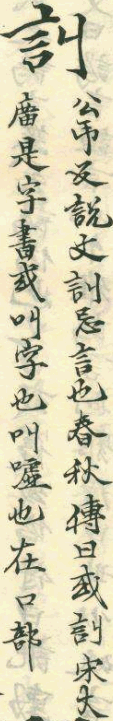 訆
公吊反說文訆忌言也春秋傳曰或訆宋大
廣是字書或叫字也叫嘑也在口部